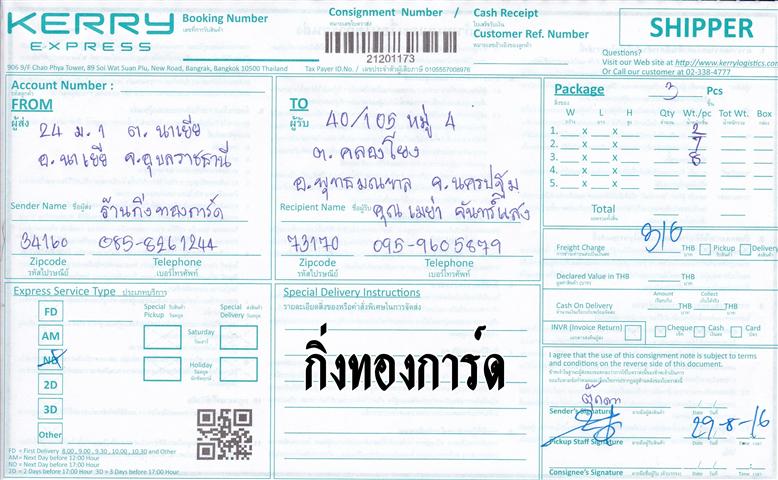 KERRY
EXPRESS
Booking Number
เลขที่การรับสินค้า
Consignment Number /
หมายเลขใบตราส่ง
Cash Receipt
ใบเสร็จรับเงิน
Customer Ref. Number
21201173
SHIPPER
Questions?
Visit our Web site at http://www.kerrylogistics.com
Or Call our customer at 02-338-4777
906 9/F Chao Phya Tower, 89 Soi Wat Suan Plu, New Road, Bangrak, Bangkok 10500 Thailand
Tax Payer ID.No. / เลขประจำตัวผู้เสียภาษี 0105557008976
Account Number :
FROM
ผู้ส่ง
24 ม.1 ต.นาเยีย
อ.นาเยีย จ.อุบลราชธานี
Sender Name ชื่อผู้ส่ง ร้านกิ่งทองการ์ด
34160 085-8261244
Zipcode Telephone
รหัสไปรษณีย์ เบอร์โทรศัพท์
TO
ผู้รับ
40/105 หมู่ 4
ต.คลองโยง
อ.พุทธมณฑล จ.นครปฐม
Recipient Name ชื่อผู้รับ คุณเมย่า จันทร์แสง
73170 095-9605879
Zipcode Telephone
รหัสไปรษณีย์ เบอร์โทรศัพท์
Package 3 Pcs
W L H Qty Wt./pc Tot Wt. Box
1. x x 2
2. x x 7
3. x x 8
4. x x
5. x x
Total
Freight Charge 310 THB Pickup Delivery
Declared Value in THB
Amount Collect
Cash On Delivery THB THB
INVR (Invoice Return) Cheque Cash Card
Express Service Type ประเภทบริการ
FD
AM
ND
2D
3D
Other
Special Pickup
Special Delivery
Saturday
วันเสาร์
Holiday
วันหยุด
FD = First Delivery 8.00 , 9.00 , 9.30 , 10.00 , 10.30 and Other
AM = Next Day before 12:00 Hour
ND = Next Day before 17:00 Hour
2D = 2 Days before 17:00 Hour 3D = 3 Days before 17:00 Hour
Special Delivery Instructions
รายละเอียดสิ่งของหรือคำสั่งพิเศษในการจัดส่ง
กิ่งทองการ์ด
I agree that the use of this consignment note is subject to terms
and conditions on the reverse side of this document.
ตุ๊กตา
Sender's Signature
Pickup Staff Signature
29-8-16
Consignee's Signature